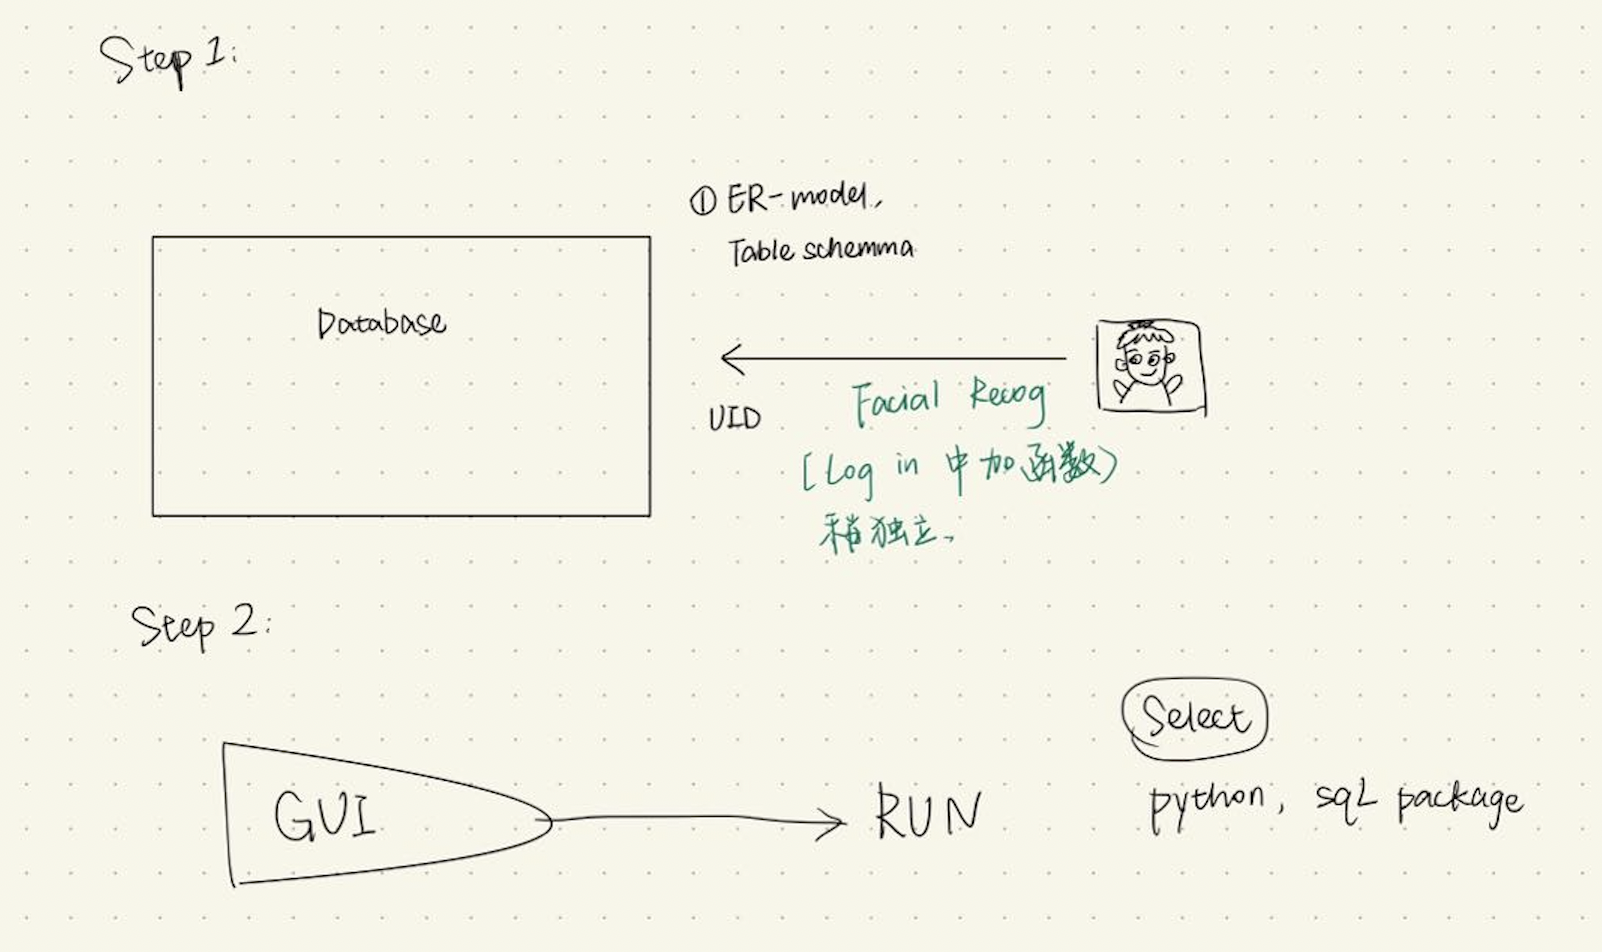 Step 1:
① ER-model,
Table schemma
Database
Facial Recog
UID
(Log in 中加函数)
稍独立、
Step 2:
Select
GUI
RUN
python, sqL package